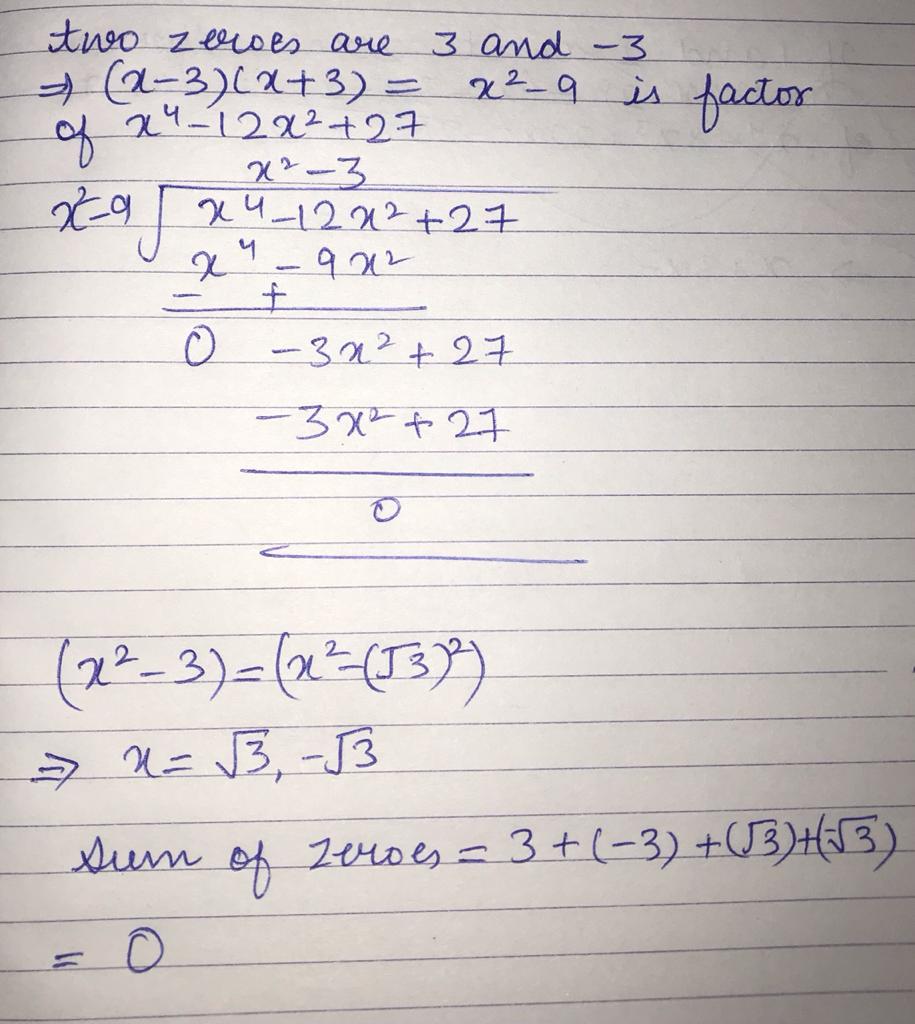 two zeroes are 3 and -3
⇒ (x-3)(x+3) = x²-9 is factor
of x⁴-12x²+27
x²-3
x²-9 x⁴-12x²+27
x⁴-9x²
- +
0 -3x²+27
-3x²+27
0
(x²-3)=(x²-(√3)²)
⇒ x=√3, -√3
sum of zeroes = 3+(-3)+(√3)+(-√3)
= 0